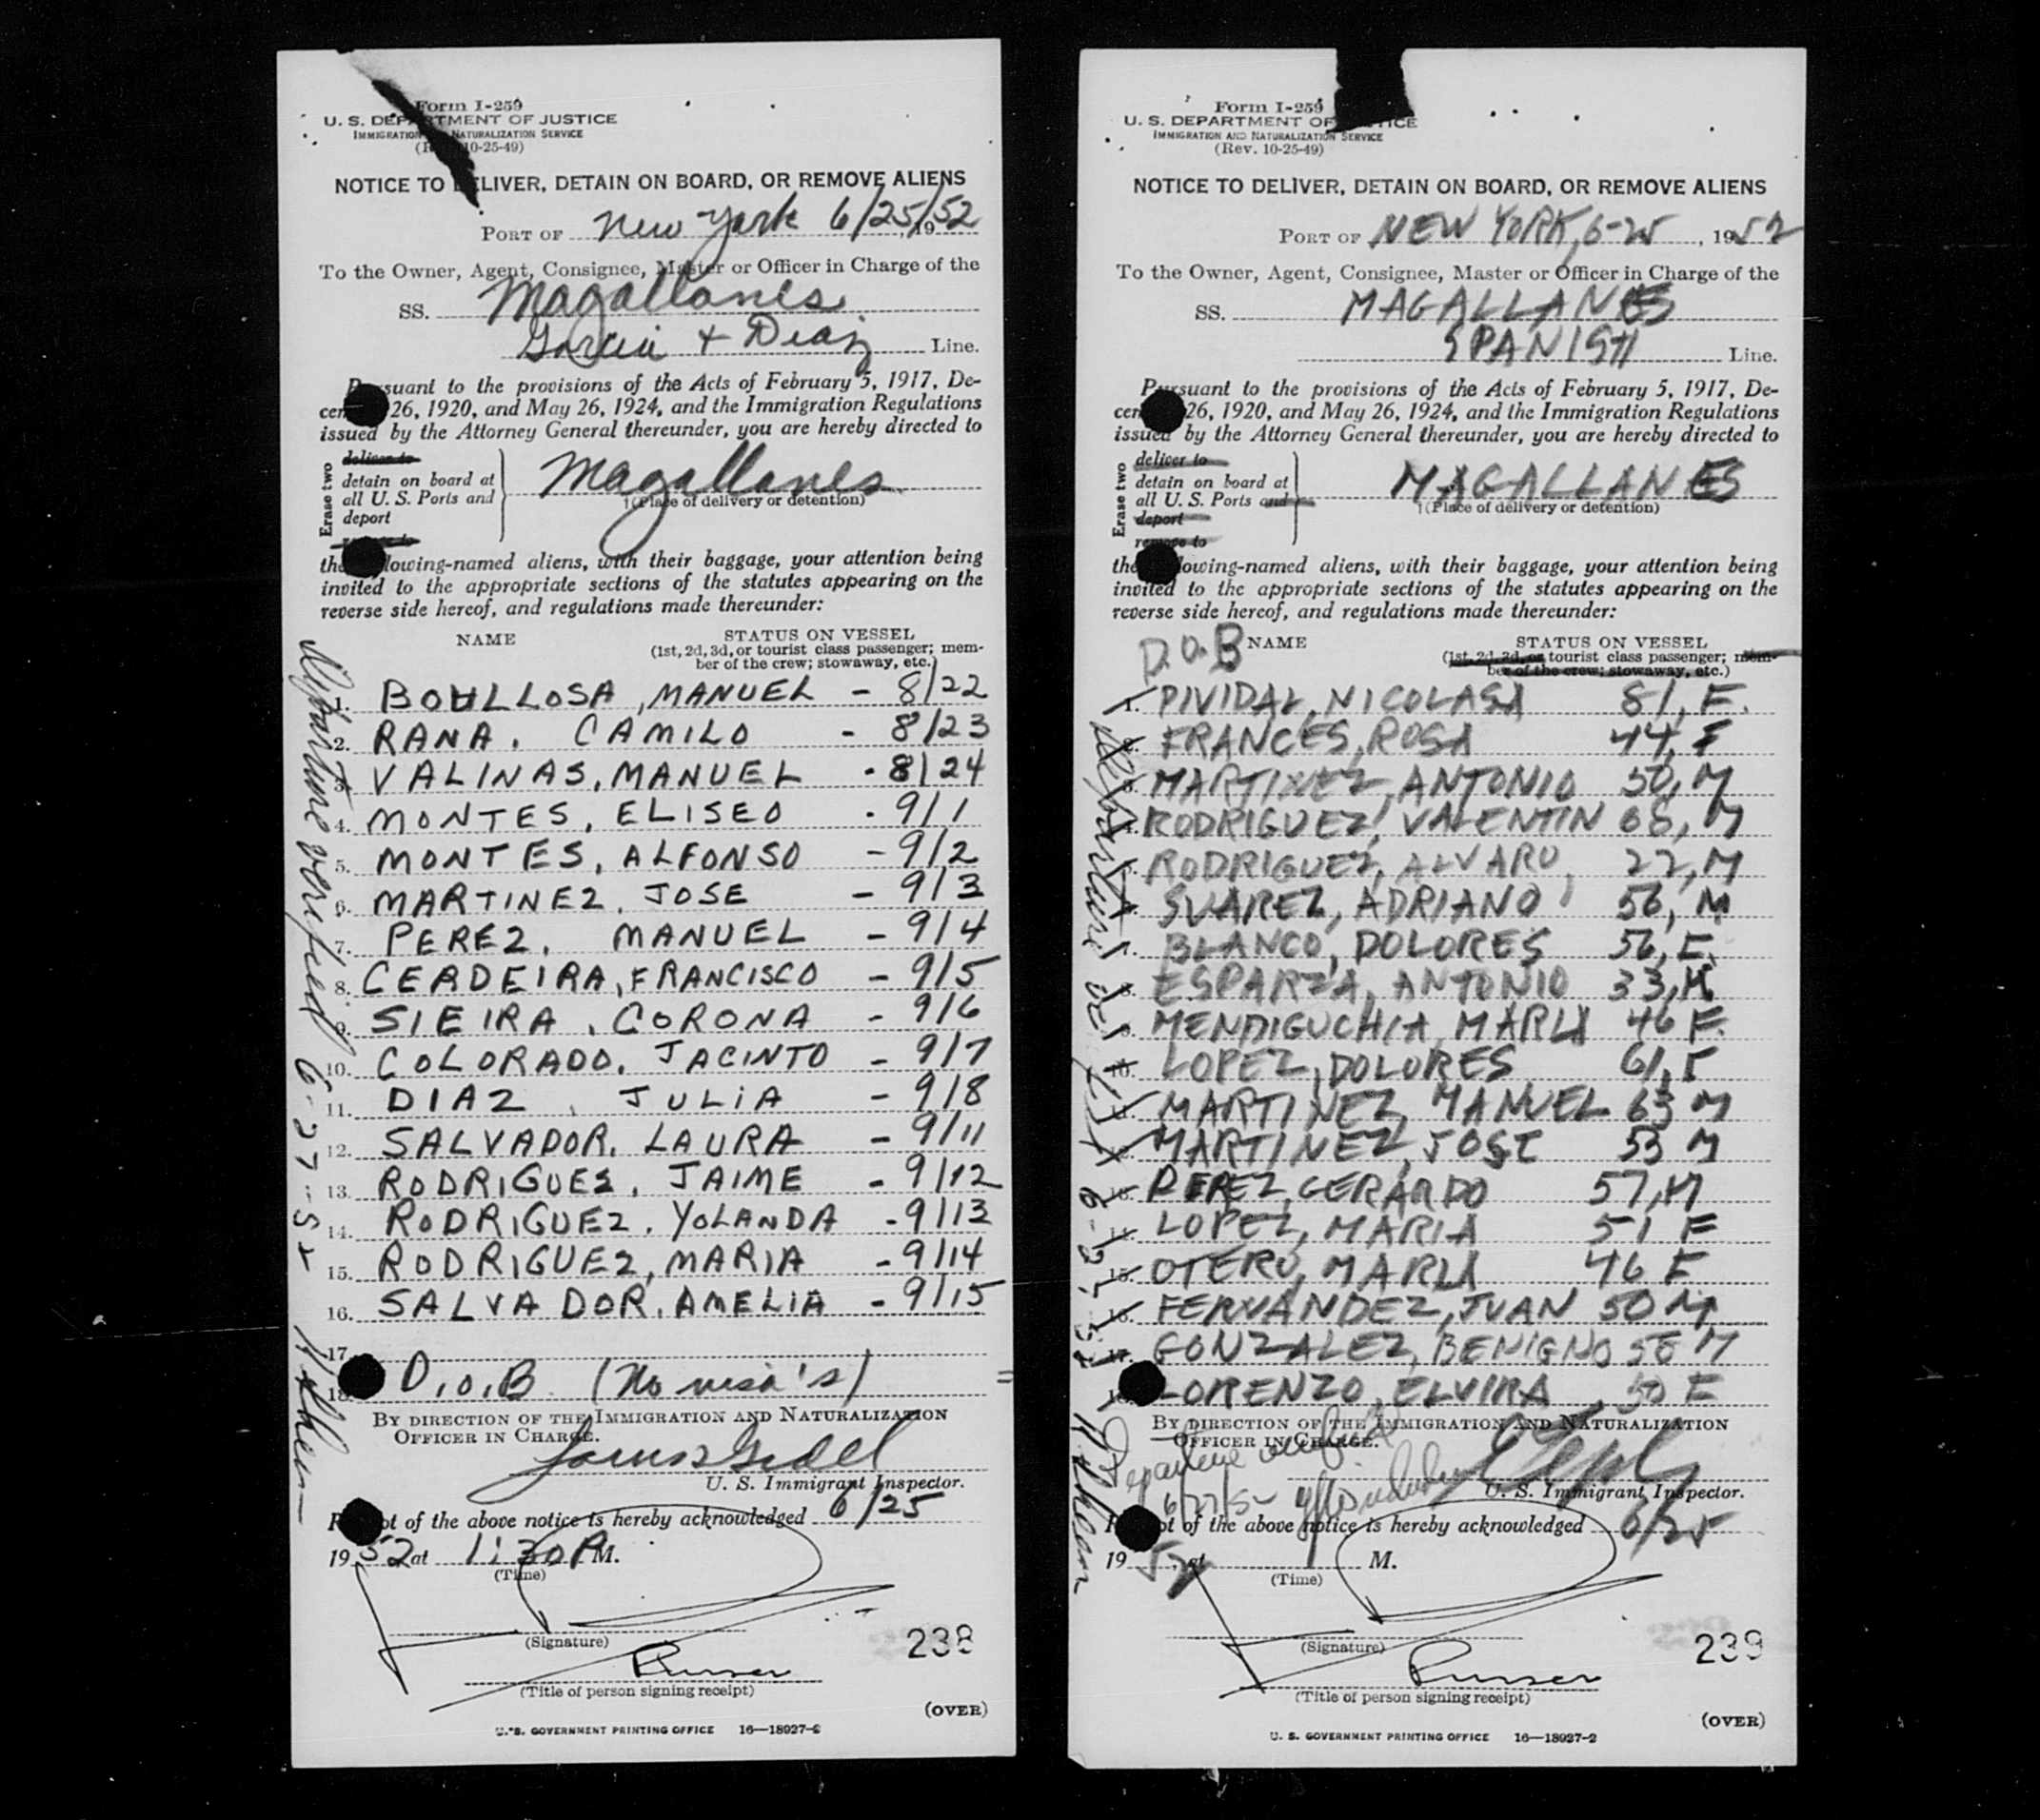 Form I-259
U. S. DEPARTMENT OF JUSTICE
IMMIGRATION NATURALIZATION SERVICE
10-25-49)
NOTICE TO DELIVER, DETAIN ON BOARD, OR REMOVE ALIENS
PORT OF New York 6/25/, 1952
To the Owner, Agent, Consignee, Master or Officer in Charge of the
SS. Magallanes
Garcia + Diaz Line.
Pursuant to the provisions of the Acts of February 5, 1917, De-
cem 26, 1920, and May 26, 1924, and the Immigration Regulations
issued by the Attorney General thereunder, you are hereby directed to
Erase two
deliver to
detain on board at
all U. S. Ports and
deport
remove to
Magallanes
†(Place of delivery or detention)
the lowing-named aliens, with their baggage, your attention being
invited to the appropriate sections of the statutes appearing on the
reverse side hereof, and regulations made thereunder:
NAME STATUS ON VESSEL
(1st, 2d, 3d, or tourist class passenger; mem-
ber of the crew; stowaway, etc.)
1. BOULLOSA, MANUEL - 8/22
2. RANA, CAMILO - 8/23
3. VALINAS, MANUEL - 8/24
4. MONTES, ELISEO - 9/1
5. MONTES, ALFONSO - 9/2
6. MARTINEZ, JOSE - 9/3
7. PEREZ, MANUEL - 9/4
8. CERDEIRA, FRANCISCO - 9/5
9. SIEIRA, CORONA - 9/6
10. COLORADO, JACINTO - 9/7
11. DIAZ, JULIA - 9/8
12. SALVADOR, LAURA - 9/11
13. RODRIGUES, JAIME - 9/12
14. RODRIGUEZ, YOLANDA - 9/13
15. RODRIGUEZ, MARIA - 9/14
16. SALVADOR, AMELIA - 9/15
17.
18. D.O.B (No visa's)
Departure verified 6-27-52
BY DIRECTION OF THE IMMIGRATION AND NATURALIZATION
OFFICER IN CHARGE.
U. S. Immigrant Inspector.
of the above notice is hereby acknowledged 6/25
1952 at 1:30 P M.
(Time)
(Signature)
Purser
(Title of person signing receipt)
238
(OVER)
U. S. GOVERNMENT PRINTING OFFICE 16—18927-2
Form I-259
U. S. DEPARTMENT OF JUSTICE
IMMIGRATION AND NATURALIZATION SERVICE
(Rev. 10-25-49)
NOTICE TO DELIVER, DETAIN ON BOARD, OR REMOVE ALIENS
PORT OF NEW YORK, 6-25, 1952
To the Owner, Agent, Consignee, Master or Officer in Charge of the
SS. MAGALLANES
SPANISH Line.
Pursuant to the provisions of the Acts of February 5, 1917, De-
cem 26, 1920, and May 26, 1924, and the Immigration Regulations
issued by the Attorney General thereunder, you are hereby directed to
Erase two
deliver to
detain on board at
all U. S. Ports and
deport
remove to
MAGALLANES
†(Place of delivery or detention)
the lowing-named aliens, with their baggage, your attention being
invited to the appropriate sections of the statutes appearing on the
reverse side hereof, and regulations made thereunder:
D.O.B NAME STATUS ON VESSEL
(1st, 2d, 3d, or tourist class passenger; mem-
ber of the crew; stowaway, etc.)
1. PIVIDAL, NICOLASA 81, F.
2. FRANCES, ROSA 44, F
3. MARTINEZ, ANTONIO 50, M
4. RODRIGUEZ, VALENTIN 68, M
5. RODRIGUEZ, ALVARO, 22, M
6. SUAREZ, ADRIANO 56, M
7. BLANCO, DOLORES 56, F.
8. ESPARZA, ANTONIO 33, M
9. MENDIGUCHIA, MARIA 46 F.
10. LOPEZ, DOLORES 61, F
11. MARTINEZ, MANUEL 63 M
12. MARTINEZ, JOSE 53 M
13. PEREZ, GERARDO 57, M
14. LOPEZ, MARIA 51 F
15. OTERO, MARIA 46 F
16. FERNANDEZ, JUAN 50 M
17. GONZALEZ, BENIGNO 56 M
18. LORENZO, ELVIRA 50 F
BY DIRECTION OF THE IMMIGRATION AND NATURALIZATION
OFFICER IN CHARGE.
Departure verified
6/27/52
U. S. Immigrant Inspector.
of the above notice is hereby acknowledged 6/25
1952, at M.
(Time)
(Signature)
Purser
(Title of person signing receipt)
239
(OVER)
U. S. GOVERNMENT PRINTING OFFICE 16—18927-2